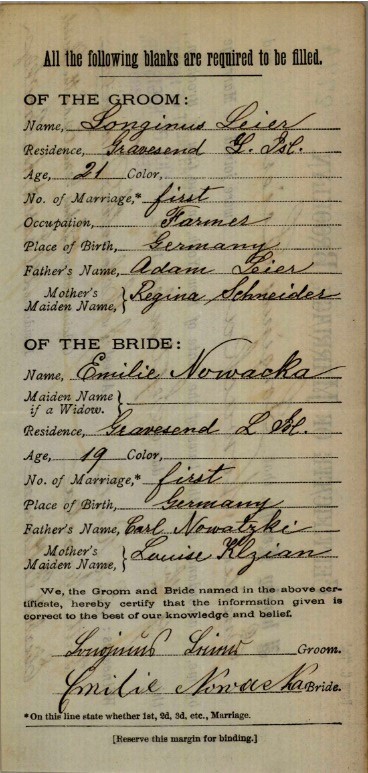 All the following blanks are required to be filled.
OF THE GROOM:
Name, Longinus Leier
Residence, Gravesend L. Isl.
Age, 21 Color,
No. of Marriage,* first
Occupation, Farmer
Place of Birth, Germany
Father's Name, Adam Leier
Mother's Maiden Name, } Regina Schneider
OF THE BRIDE:
Name, Emilie Nowacka
Maiden Name if a Widow. }
Residence, Gravesend L Isl.
Age, 19 Color,
No. of Marriage,* first
Place of Birth, Germany
Father's Name, Carl Nowatzki
Mother's Maiden Name, } Louise
We, the Groom and Bride named in the above cer-
tificate, hereby certify that the information given is
correct to the best of our knowledge and belief.
Longinus Groom.
Emilie Nowacka Bride.
*On this line state whether 1st, 2d, 3d, etc., Marriage.
[Reserve this margin for binding.]